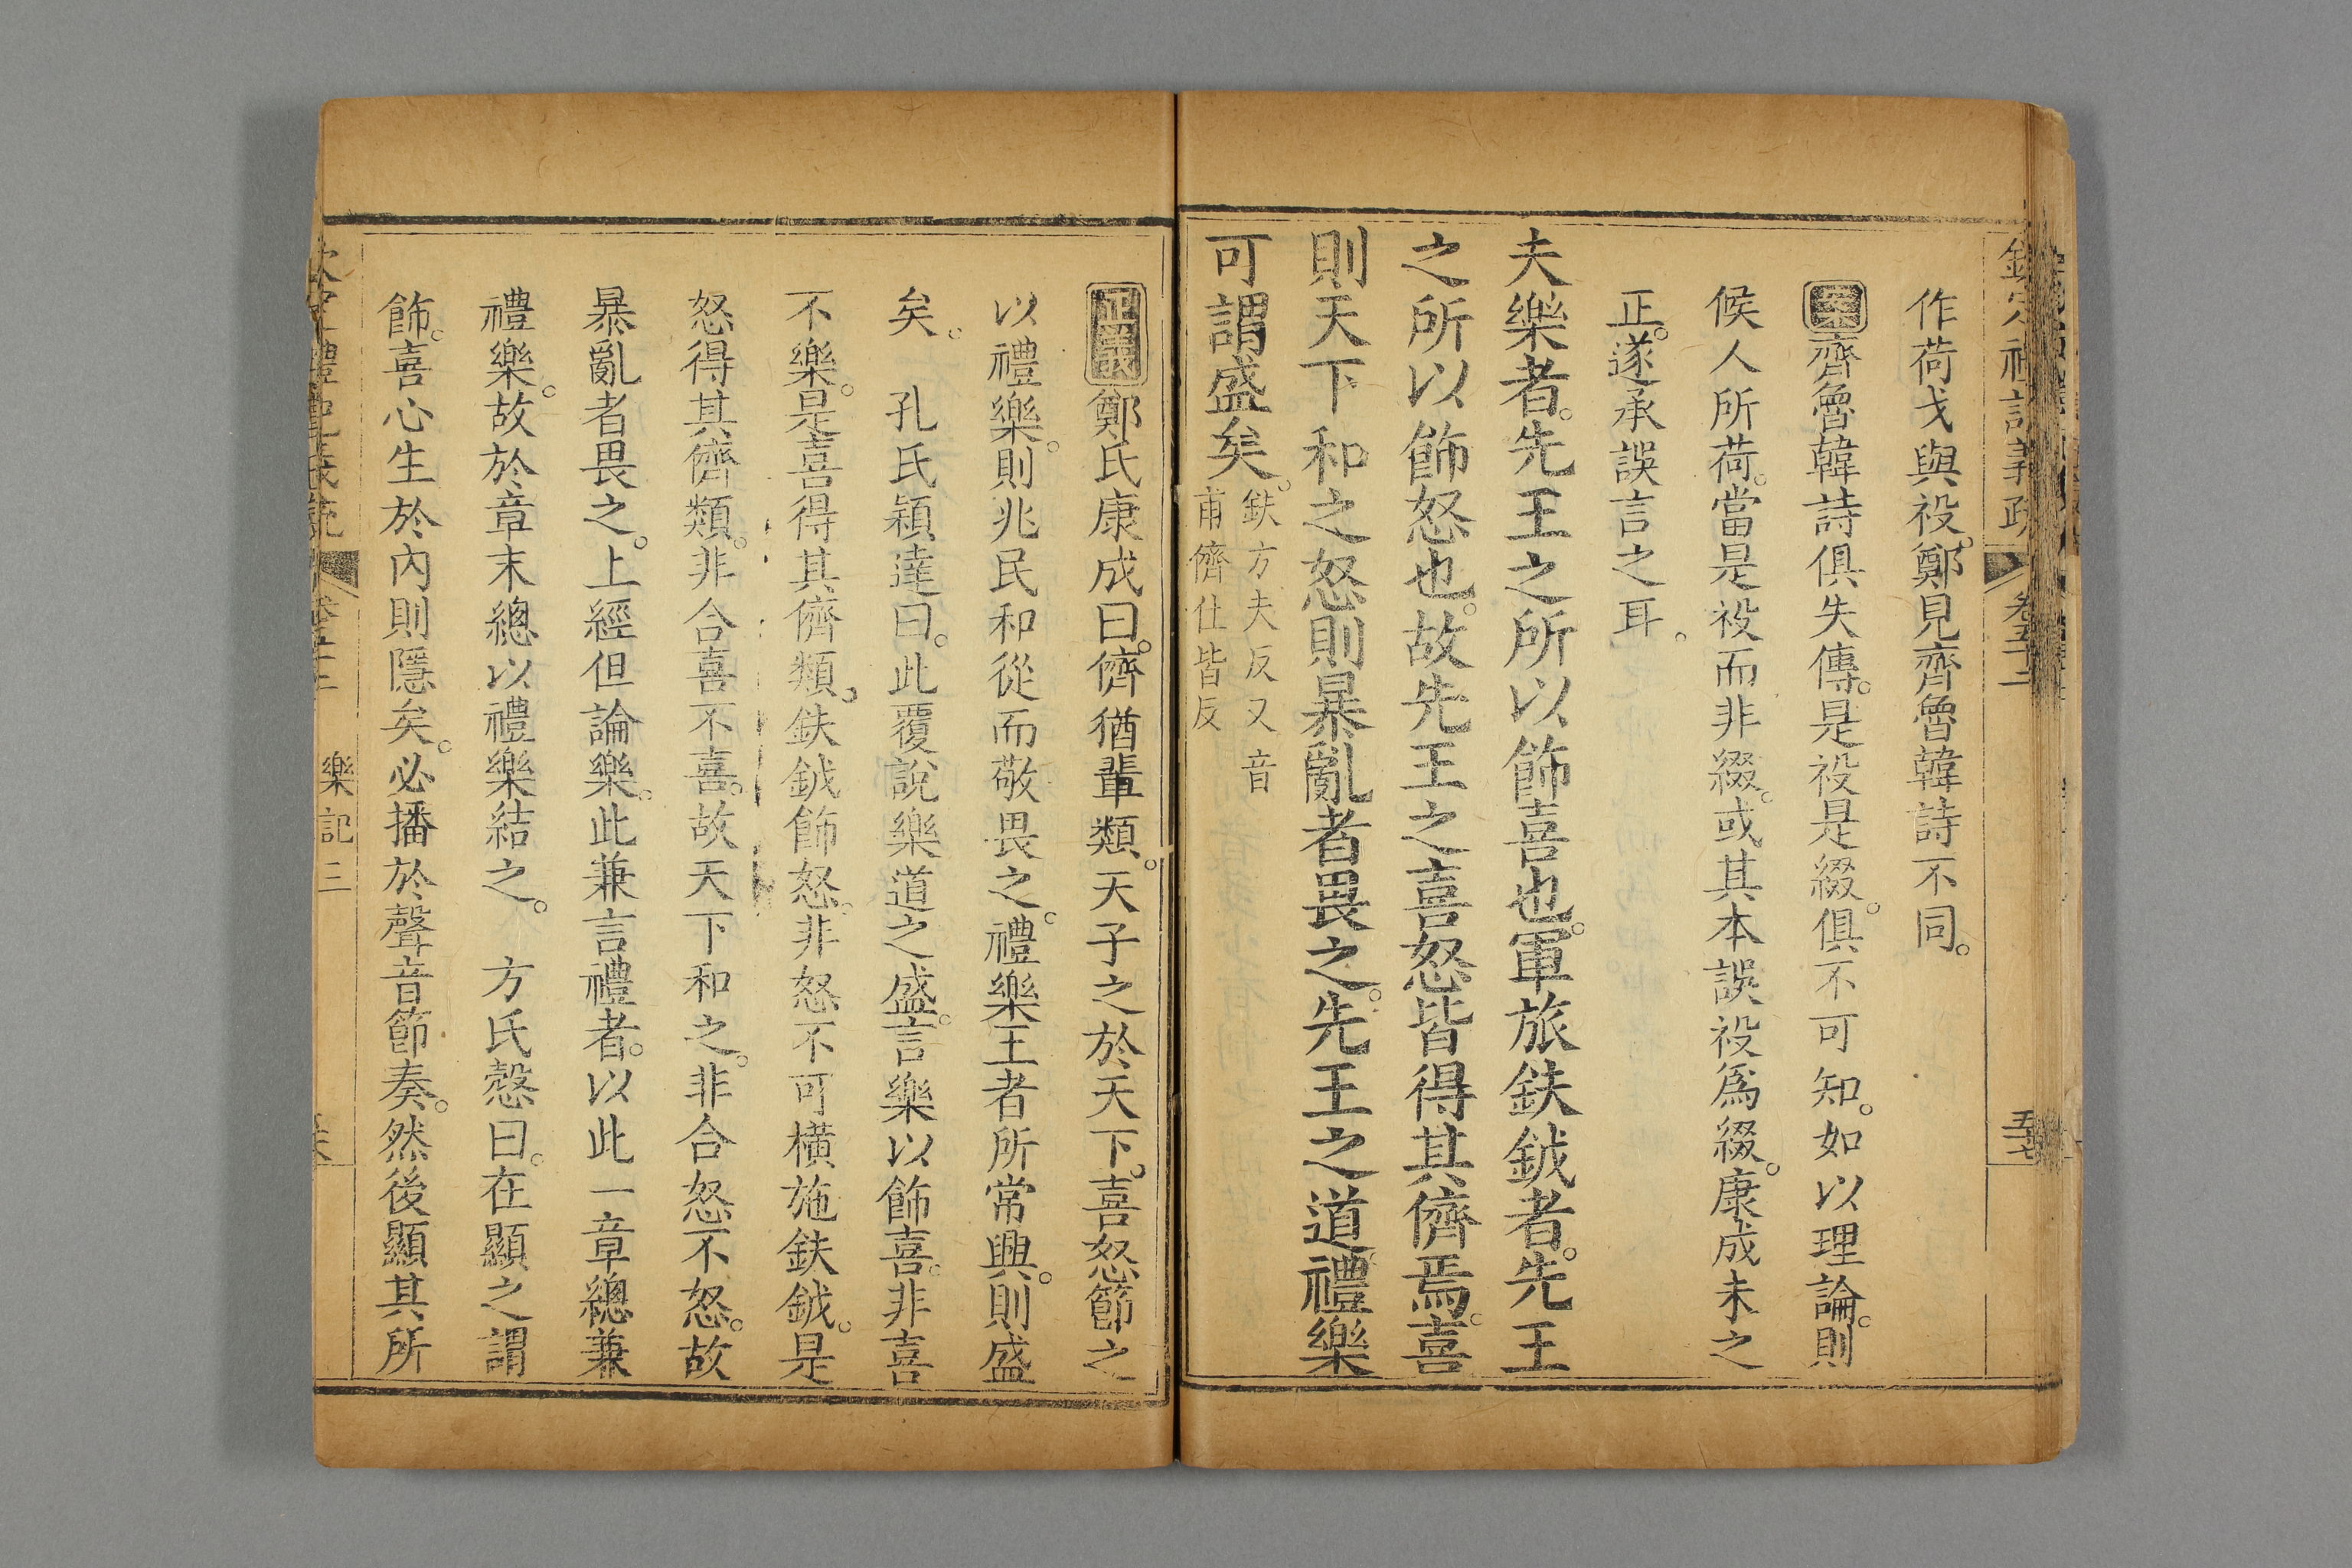 欽定禮記義疏 卷五十二 五七
作荷戈與祋。鄭見齊魯韓詩不同。
案齊魯韓詩俱失傳。是祋是綴。俱不可知。如以理論。則
候人所荷。當是祋而非綴。或其本誤祋爲綴。康成未之
正。遂承誤言之耳。
夫樂者。先王之所以飾喜也。軍旅鈇鉞者。先王
之所以飾怒也。故先王之喜怒皆得其儕焉。喜
則天下和之怒則暴亂者畏之。先王之道禮樂
可謂盛矣。
鈇方夫反又音
甫儕仕皆反
正義鄭氏康成曰。儕猶輩類。天子之於天下。喜怒節之
以禮樂。則兆民和從而敬畏之。禮樂王者所常興。則盛
矣。 孔氏穎達曰。此覆說樂道之盛。言樂以飾喜。非喜
不樂。是喜得其儕類。鈇鉞飾怒。非怒不可橫施鈇鉞。是
怒得其儕類。非合喜不喜。故天下和之。非合怒不怒。故
暴亂者畏之。上經但論樂。此兼言禮者。以此一章總兼
禮樂。故於章末總以禮樂結之。 方氏慤曰。在顯之謂
飾。喜心生於內則隱矣。必播於聲音節奏。然後顯其所
樂記三